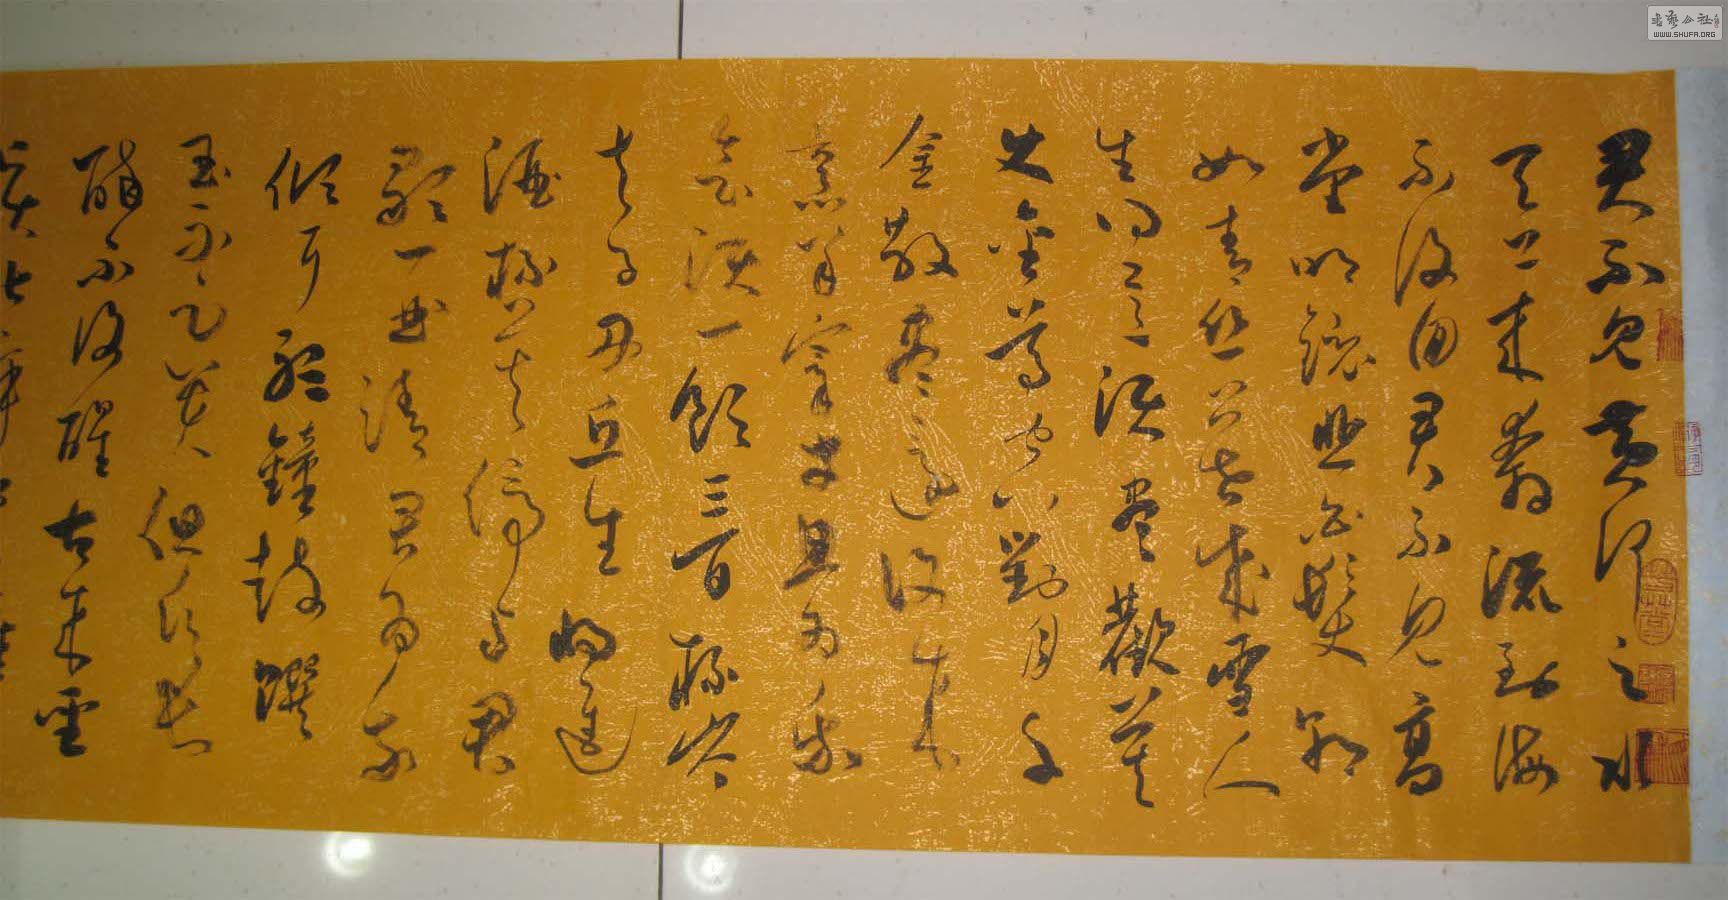 君不見黃河之水
天上來奔流到海
不復回君不見高
堂明鏡悲白髮朝
如青絲暮成雪人
生得意須盡歡莫
使金尊空對月千
金散盡還復來
烹羊宰牛且為樂
會須一飲三百杯岑
夫子丹丘生將進
酒杯莫停與君
歌一曲請君為我
傾耳聽鐘鼓饌
玉不足貴但願長
醉不復醒古來聖
書藝公社
WWW.SHUFA.ORG